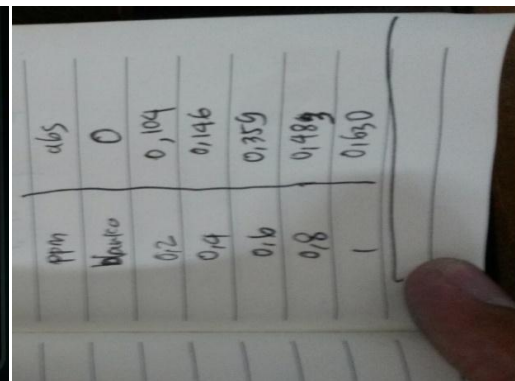 ppm abs
blanco 0
0,2 0,104
0,4 0,146
0,6 0,359
0,8 0,483
1 0,630